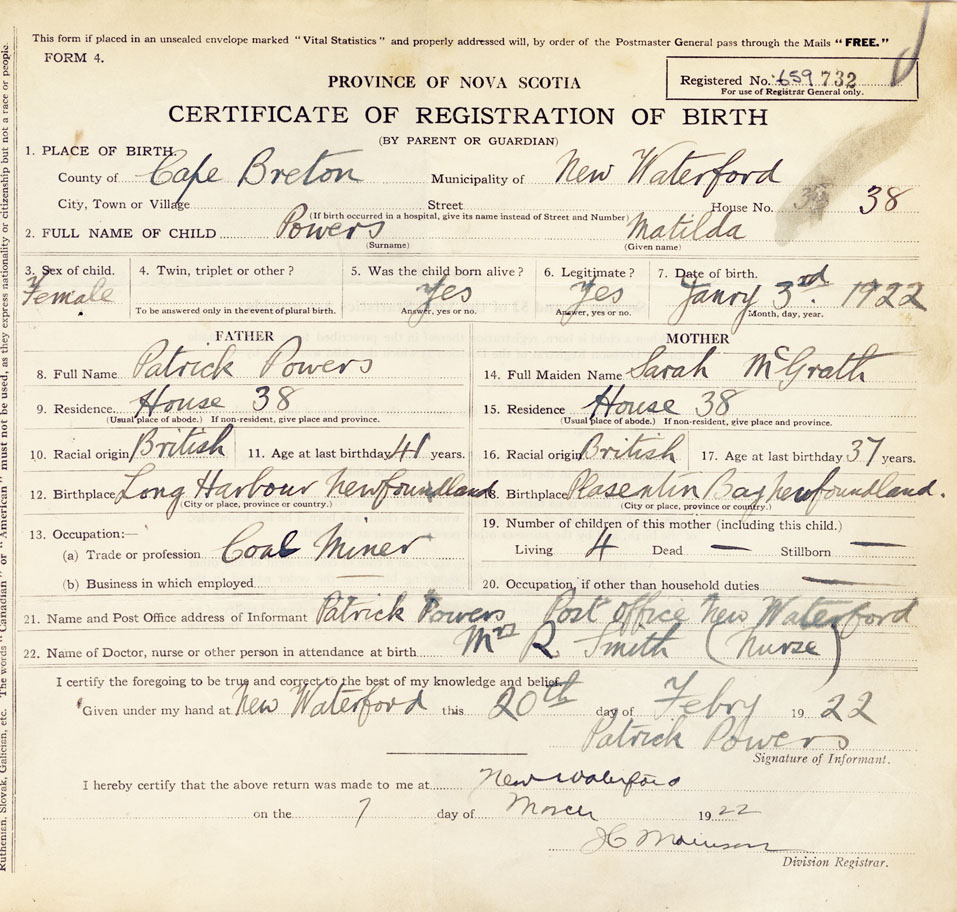 This form if placed in an unsealed envelope marked "Vital Statistics" and properly addressed will, by order of the Postmaster General pass through the Mails "FREE."
FORM 4.
PROVINCE OF NOVA SCOTIA
Registered No. 659732
For use of Registrar General only.
CERTIFICATE OF REGISTRATION OF BIRTH
(BY PARENT OR GUARDIAN)
1. PLACE OF BIRTH
County of Cape Breton Municipality of New Waterford
City, Town or Village Street House No. 38
(If birth occurred in a hospital, give its name instead of Street and Number)
2. FULL NAME OF CHILD Powers Matilda
(Surname) (Given name)
3. Sex of child. 4. Twin, triplet or other? 5. Was the child born alive? 6. Legitimate? 7. Date of birth.
Female Yes Yes Janry 3rd. 1922
To be answered only in the event of plural birth. Answer, yes or no. Answer, yes or no. Month, day, year.
FATHER
8. Full Name Patrick Powers
9. Residence House 38
(Usual place of abode.) If non-resident, give place and province.
10. Racial origin British 11. Age at last birthday 41 years.
12. Birthplace Long Harbour Newfoundland
(City or place, province or country.)
13. Occupation:—
(a) Trade or profession Coal Miner
(b) Business in which employed —
MOTHER
14. Full Maiden Name Sarah McGrath
15. Residence House 38
(Usual place of abode.) If non-resident, give place and province.
16. Racial origin British 17. Age at last birthday 37 years.
18. Birthplace Plasentin Bay Newfoundland.
(City or place, province or country.)
19. Number of children of this mother (including this child.)
Living 4 Dead — Stillborn —
20. Occupation, if other than household duties —
21. Name and Post Office address of Informant Patrick Powers Post office New Waterford
22. Name of Doctor, nurse or other person in attendance at birth Mrs R. Smith (Nurse)
I certify the foregoing to be true and correct to the best of my knowledge and belief.
Given under my hand at New Waterford this 20th day of Febry 1922
Patrick Powers
Signature of Informant.
I hereby certify that the above return was made to me at New Waterford
on the 7 day of March 1922
Division Registrar.
Ruthenian, Slovak, Galician, etc. The words "Canadian" or "American" must not be used, as they express nationality or citizenship but not a race or people.